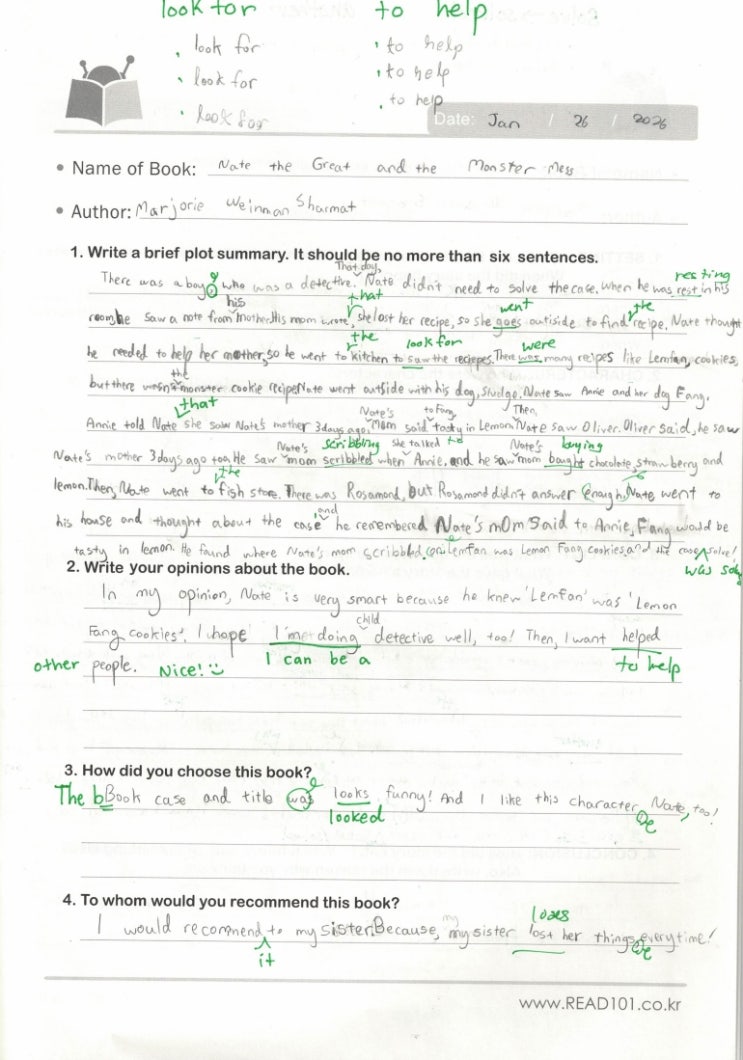 look for to help
look for to help
look for to help
look for to help
Date: Jan / 26 / 2026
Name of Book: Nate the Great and the Monster Mess
Author: Marjorie Weinman Sharmat
1. Write a brief plot summary. It should be no more than six sentences.
That day, resting
There was a boy who was a detective. Nate didn't need to solve the case. When he was rest in his
his that went the
room, he saw a note from mother. His mom wrote, she lost her recipe, so she goes outiside to find recipe. Nate thought
the look for were
he needed to help her mother, so he went to kitchen to saw the reciepes. There was many reipes like Lemfan, cookies,
the
but there wasn't monster cookie recipe. Nate went outside with his dog, Sludge. Nate saw Annie and her dog Fang.
that Nate's to Fang, Then,
Annie told Nate she saw Nate's mother 3 days ago. Mom said tasty in Lemon. Nate saw Oliver. Oliver said, he saw
Nate's scribbling she talked to Nate's buying
Nate's mother 3 days ago too. He saw mom scribbled when Annie. and he saw mom bought chocolate, strawberry and
the
lemon. Then, Nate went to fish store. There was Rosamond, but Rosamond didn't answer enough, Nate went to
and
his house and thought about the case he remembered Nate's mom said to Annie, Fang would be
tasty in lemon. He found where Nate's mom scribbled Lemfan was Lemon Fang cookies, and the case solve!
was
2. Write your opinions about the book.
In my opinion, Nate is very smart because he knew 'Lemfan' was 'Lemon
child
Fang cookies'. I hope I'm doing detective well, too! Then, I want helped
I can be a to help
other people. Nice!
3. How did you choose this book?
The bBook case and title was looks funny! And I like this character, Nate, too!
looked
4. To whom would you recommend this book?
my loses
I would recommend to my sister. Because, my sister lost her things everytime!
it
www.READ101.co.kr